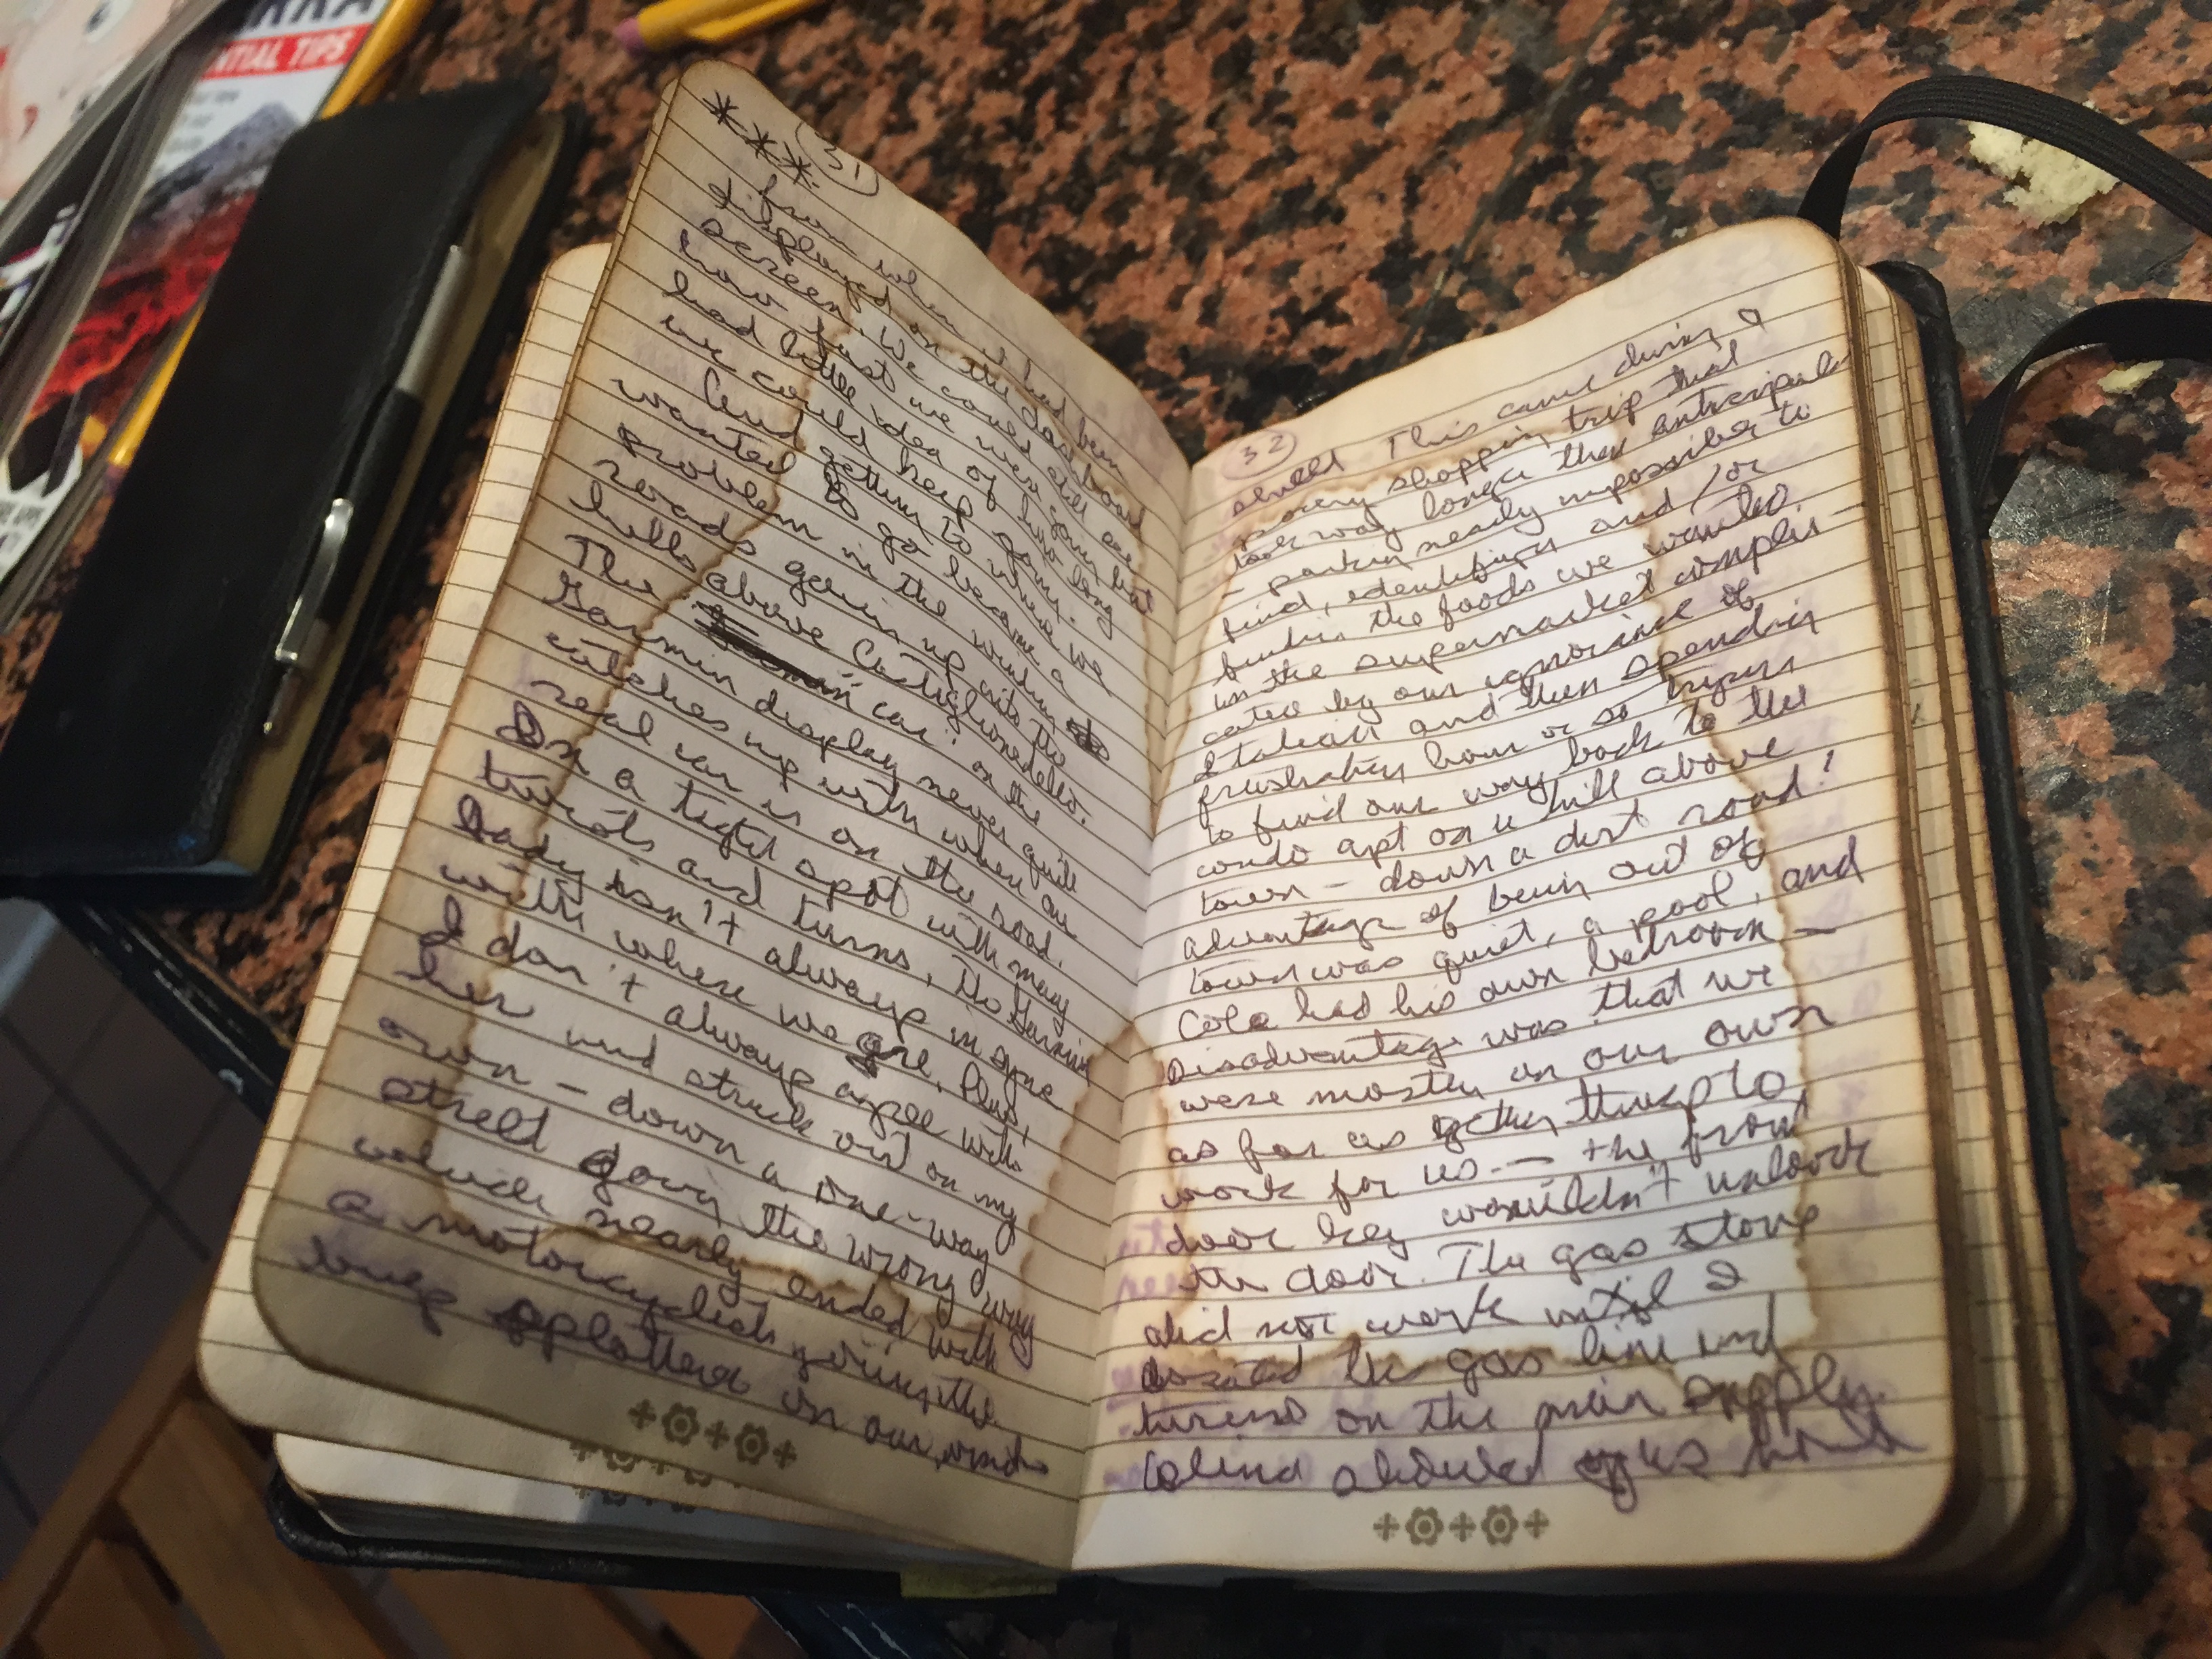 RRA
NTIAL TIPS
31
***
from when it had been
displayed on the dashboard
screen. We could still see
how fast we were going but
had little idea of how long
we could keep going.
And getting to where we
wanted to go became a
problem in the winding
roads going up into the
hills above Castiglioncello.
The car on the
Garmin display never quite
catches up with where our
real car is on the road.
In a tight spot with many
twists and turns, the Garmin
lady isn't always in sync
with where we are. Plus,
I don't always agree with
her and struck out on my
own - down a one-way
street going the wrong way
which nearly ended with
a motorcyclist giving the
bug splatter on our wind-
32
shield. This came during a
grocery shopping trip that
took way longer than anticipated
- parking nearly impossible to
find, identifying and/or
finding the foods we wanted
in the supermarket compli-
cated by our ignorance of
Italian and then spending
frustrating hour or so trying
to find our way back to the
condo apt on a hill above
town - down a dirt road!
Advantage of being out of
town was quiet, a pool, and
Cole had his own bedroom -
Disadvantage was that we
were mostly on our own
as far as getting things to
work for us - the front
door key wouldn't unlock
the door. The gas stove
did not work until I
located the gas line and
turned on the main supply.